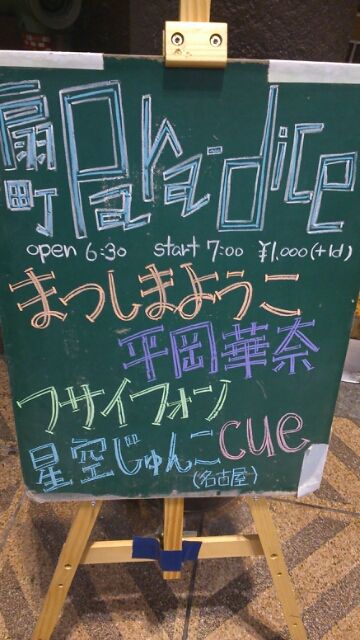 扇町Para-dice
open 6:30 start 7:00 ¥1,000(+1d)
まつしまようこ
平岡華奈
フサイフォン
cue
星空じゅんこ
(名古屋)